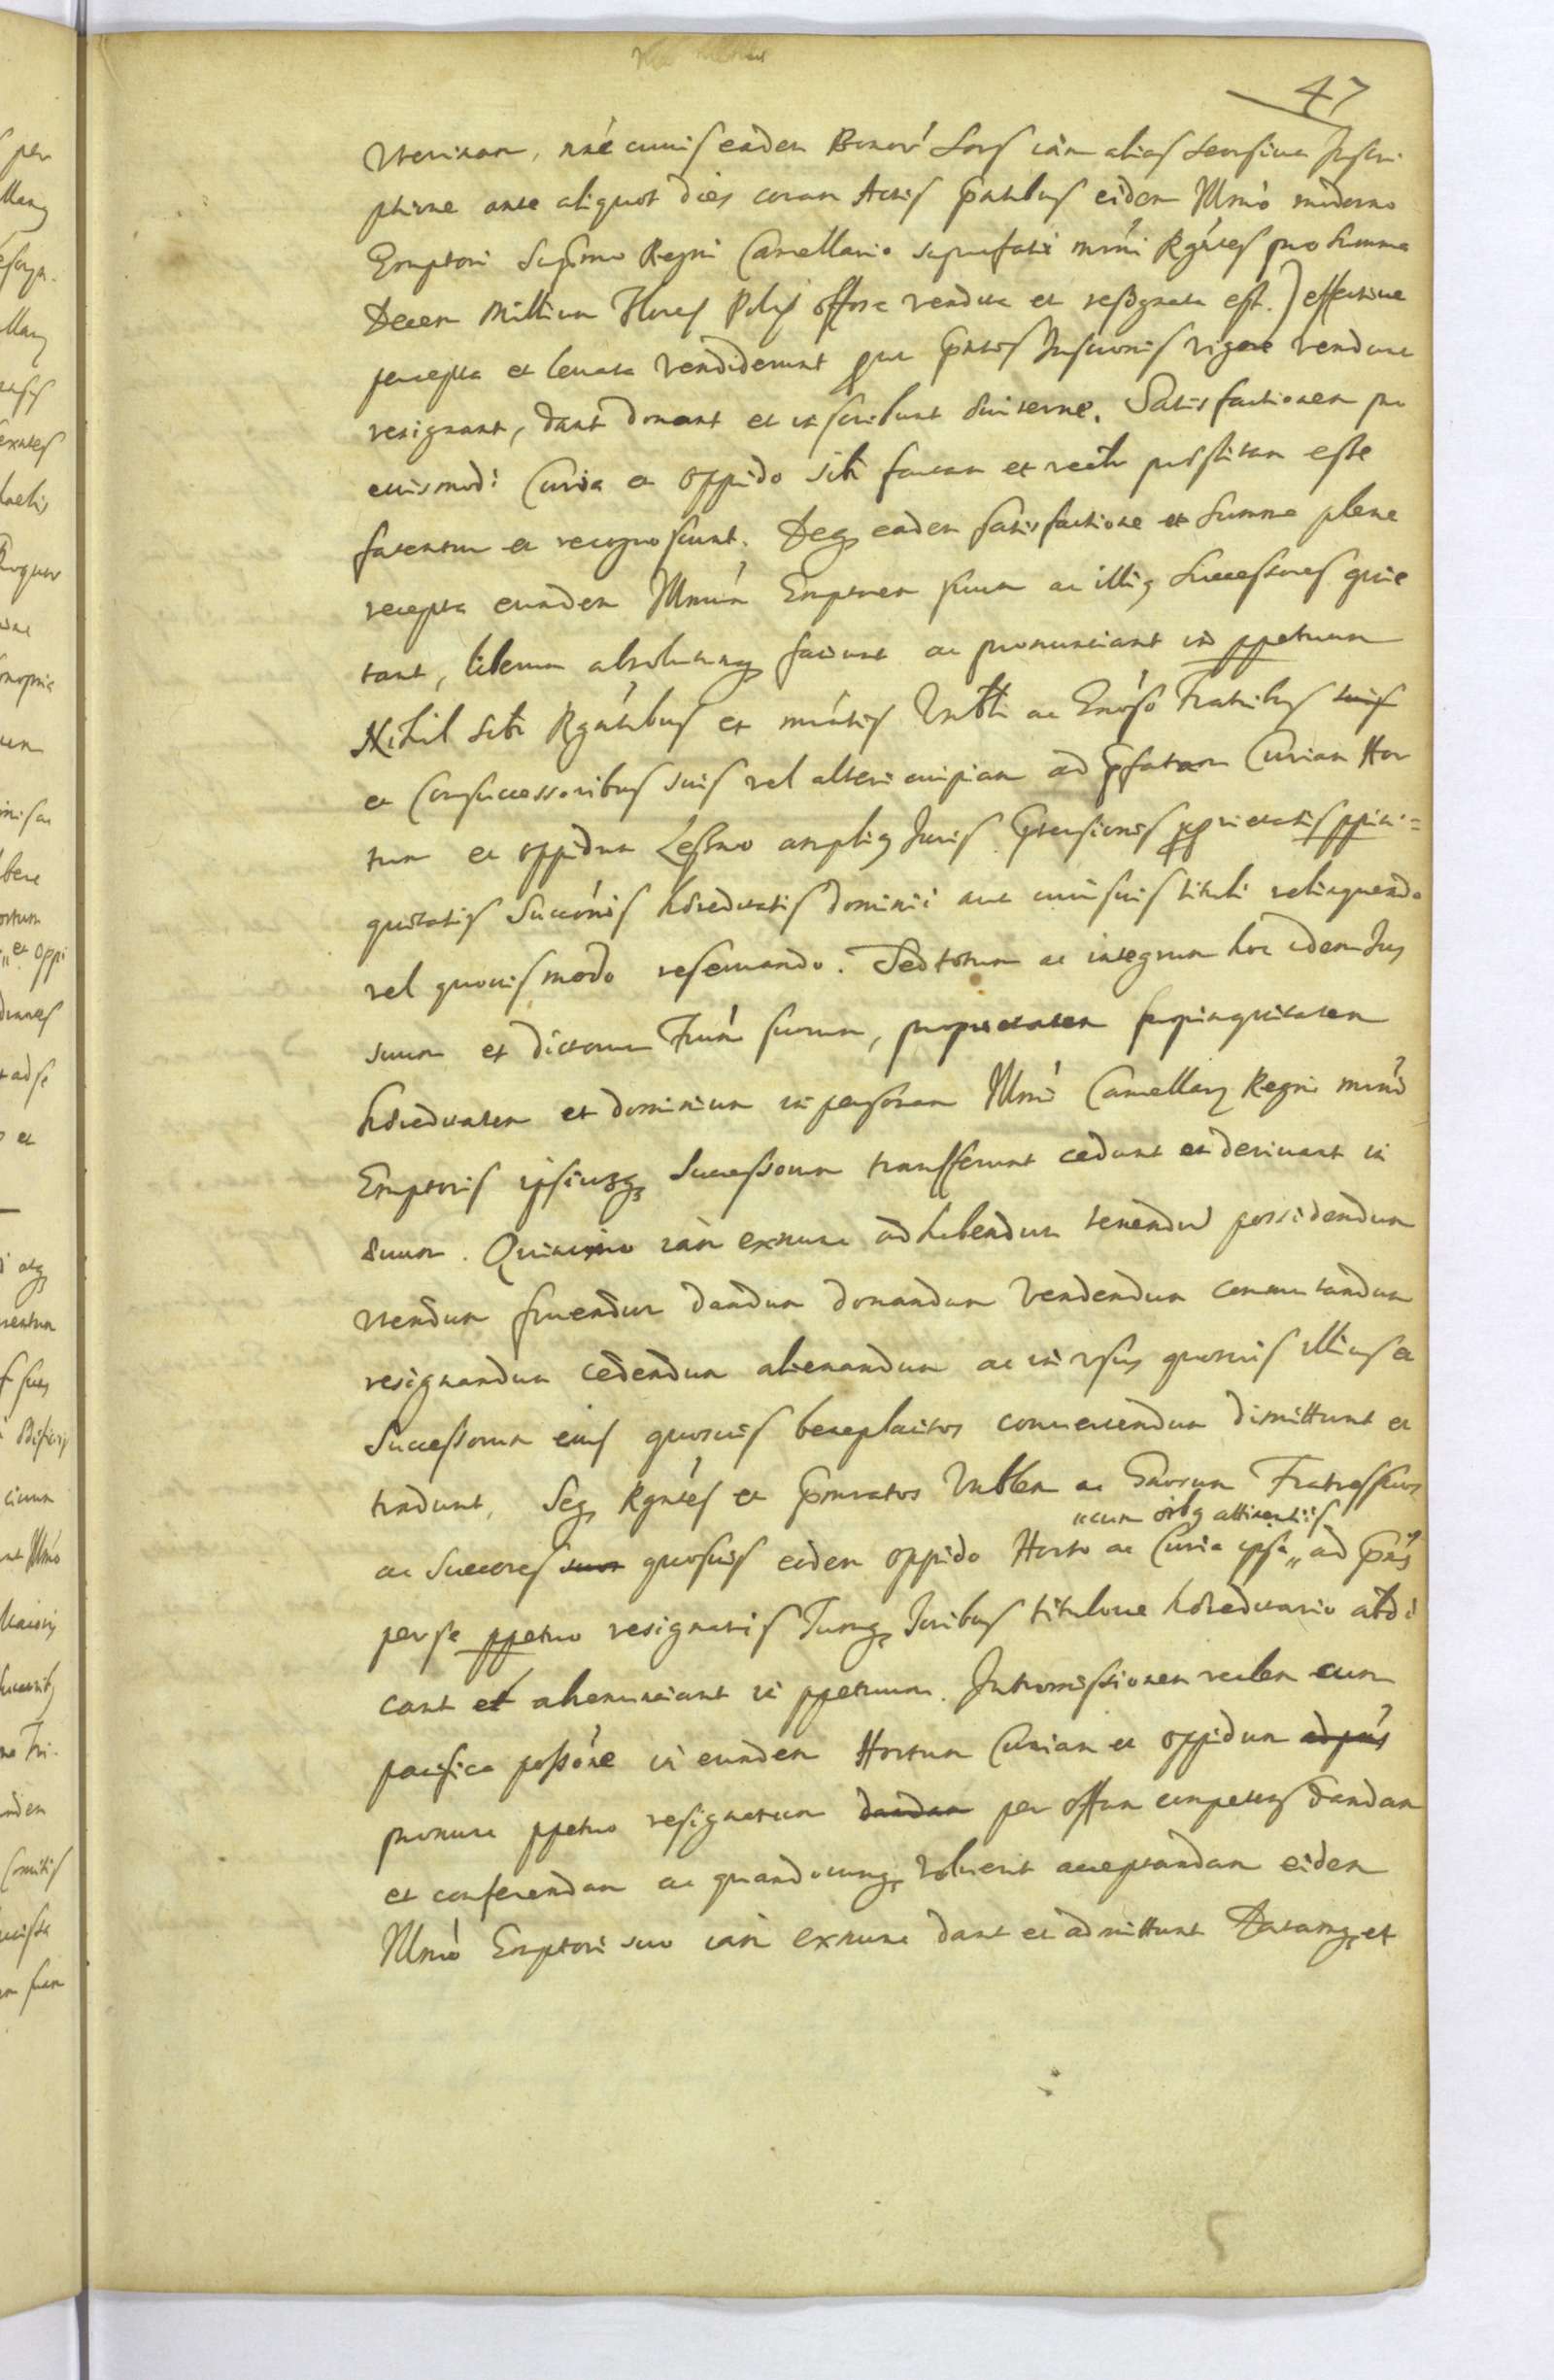 47
Uterinam, náe cuius eadem Bonor' Sors iàm alias seorsiva Inscri-
ptione ante aliquot dies coram Actis pntibus eidem Illmo moderno
Emptori Supremo Regni Cancellario suprafatæ mni Rgntes pro summa
Decem Millium Flores Poles offose vendita et resignata est.) effective
percepta et levata vendiderunt pntis Inscronis vigore vendunt
resignant, dant donant et inscribunt sempiterne. Satisfactionem pro
euismodi Curia et oppido sibi factam et realr præstitam esse
fatentur et recognoscunt. Deq eadem satisfactione et summa plene
recepta eundem Illmum Emptorem suum ac illius Successores quie
tant, liberum absolutumq faciunt ac pronunciant in ppetuum
Nihil sibi Rgntibus et mntis Unbli ac Gnroso Fratribus suis
et Consuccessoribus suis vel alteri cuipiam ad pfatam Curiam Hor
tum et oppidum Leszno amplius Juris Prtensionis pprietatis ppin-
quitatis Succonis hæreditatis dominii aut cuiusvis tituli relinquendo
vel quovismodo reservando. Sed totum ac integrum hoc idem Jus
suum et dictorum Frum suorum, proprietatem propinquitatem
hæreditatem et dominium in personam Illmi Cancellary Regni mni
Emptoris ipsiusq Successorum transferunt cedunt et derivant in
suum. Quinimo iàm exnunc ad habendum tenendum possidendum
utendum fruendum dandum donandum vendendum commutandum
resignandum cedendum alienandum ac in usus quosvis illius et
Successorum eius quosvis beneplacitos convertendum dimittunt et
tradunt. Seq Rgntes et pnmratos Unblem ac Gnrosum Fratres suos
„cum oibq attinentiis
ac Succores suos quosvis eidem oppido Horto ac Curia ipsa „ ad pns
per se ppetuo resignatis Jureq Juribus tituloue hæreditario abdi
cant et abrenunciant in ppetuum. Intromissionem realem cum
pacifica possone in eundem Hortum Curiam et oppidum ad pns
pronunc ppetuo resignatum dandam per offum competens dandam
et conferendam ac quandocunq voluerit acceptandam eidem
Illmo Emptori suo iàm exnunc dant et admittunt Datamq et